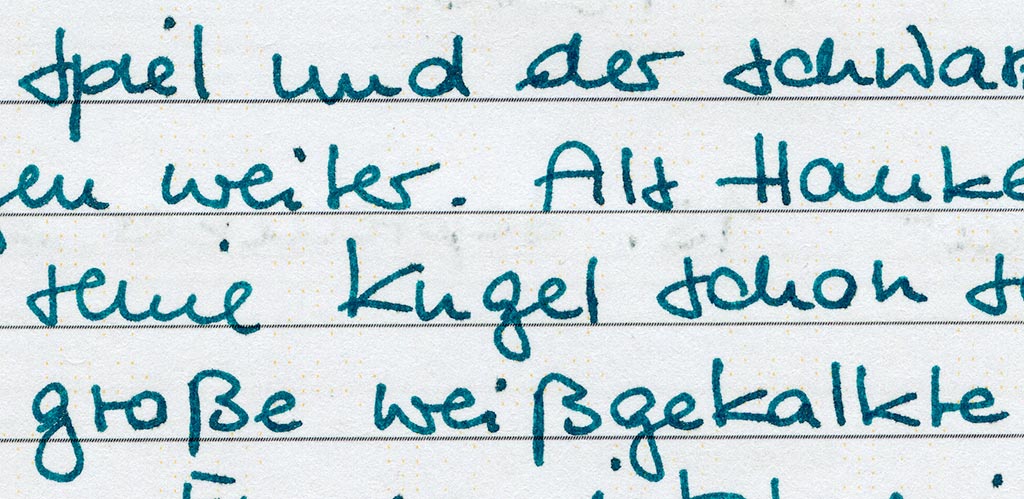 Spiel und der schwar
en weiter. Als Hauke
seine Kugel schon s
große weißgekalkte